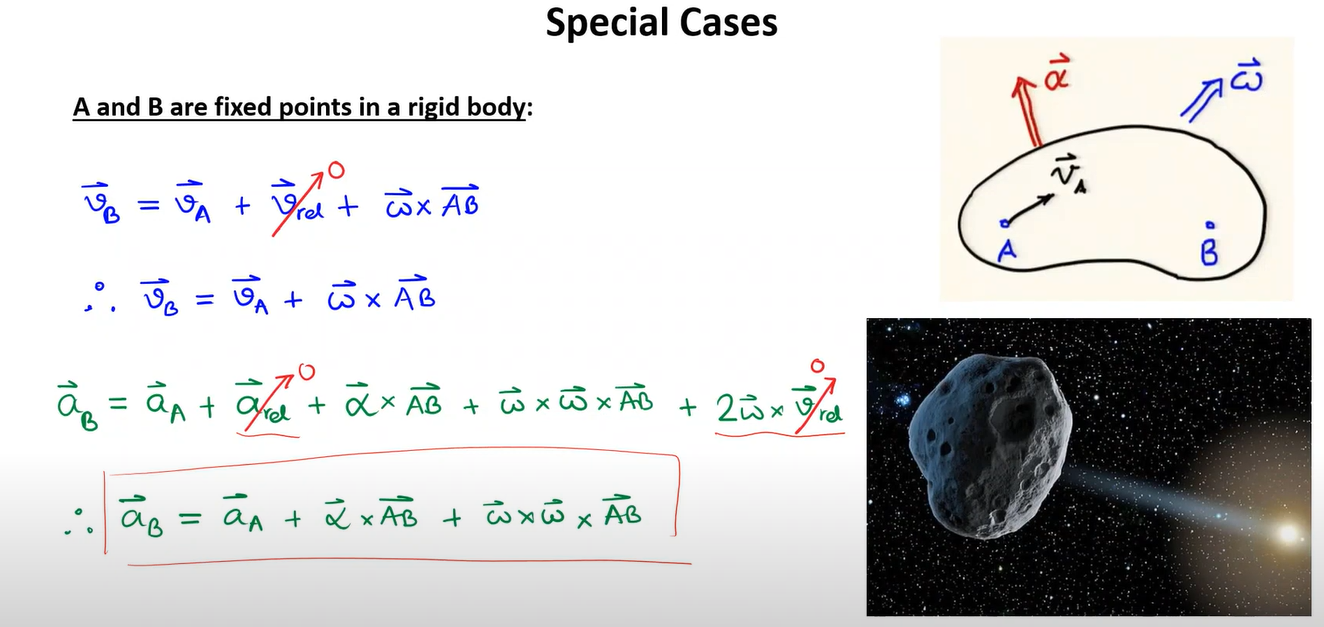 Special Cases
A and B are fixed points in a rigid body:
v⃗_B = v⃗_A + v⃗_rel↗0 + ω⃗ × A⃗B⃗
∴ v⃗_B = v⃗_A + ω⃗ × A⃗B⃗
a⃗_B = a⃗_A + a⃗_rel↗0 + α⃗ × A⃗B⃗ + ω⃗ × ω⃗ × A⃗B⃗ + 2ω⃗ × v⃗_rel↗0
∴ a⃗_B = a⃗_A + α⃗ × A⃗B⃗ + ω⃗ × ω⃗ × A⃗B⃗
α⃗
ω⃗
v⃗_A
A
B